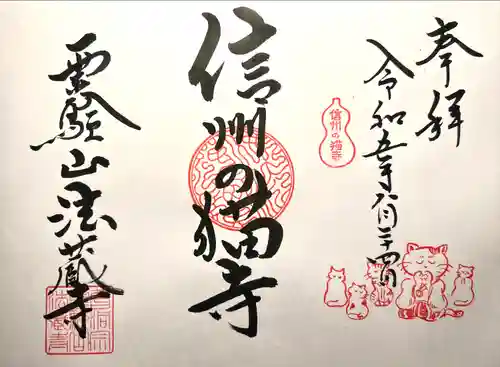 奉拝
令和五年八月二十四日
信州の猫寺
信州の猫寺
霊験山法蔵寺